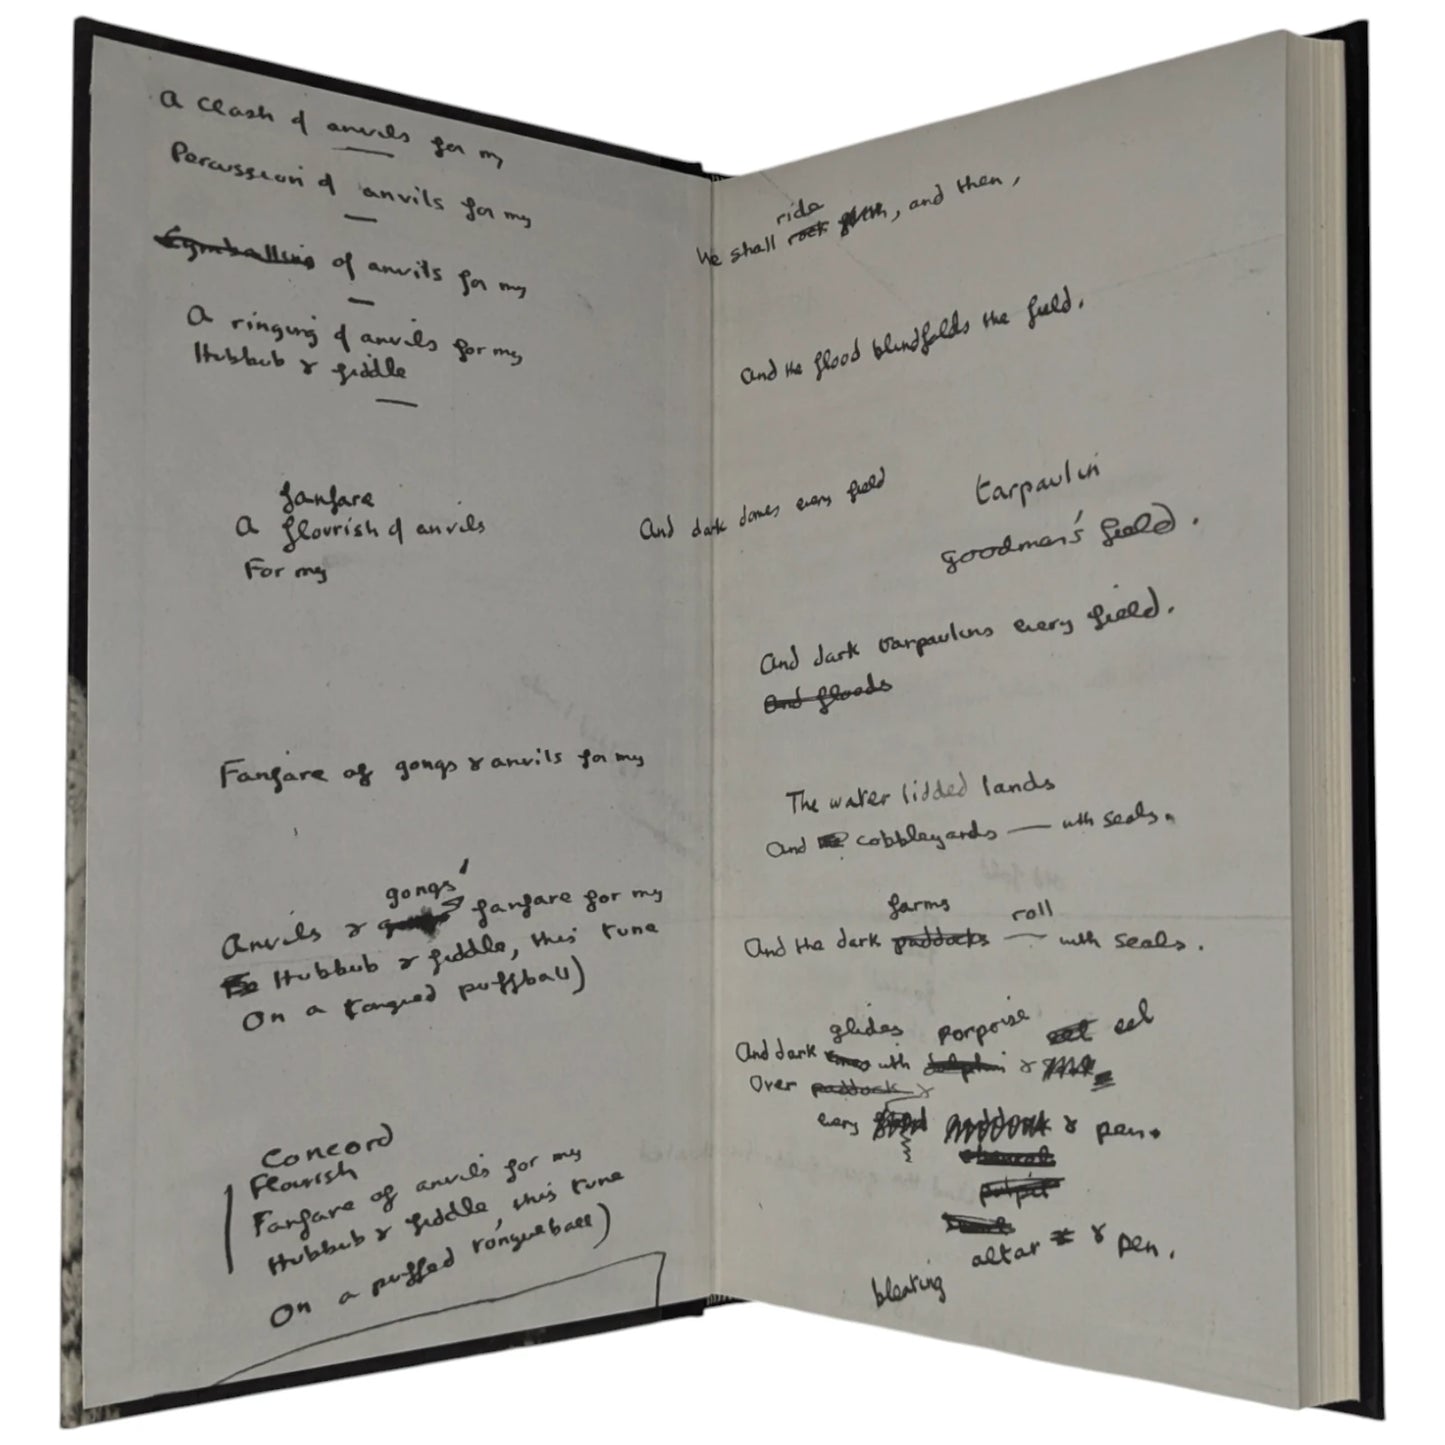 A clash of anvils for my
Percussion of anvils for my
Cymballing of anvils for my
A ringing of anvils for my
Hubbub & fiddle
fanfare
A flourish of anvils
For my
Fanfare of gongs & anvils for my
gongs'
Anvils & fanfare for my
Hubbub & fiddle, this tune
On a tongued puffball)
Concord
Flourish
Fanfare of anvils for my
Hubbub & fiddle, this tune
On a puffed tongueball)
ride
We shall rock, and then,
And the flood blindfolds the field.
And dark domes every field
tarpaulin
goodman's field.
And dark tarpaulins every field.
And floods
The water lidded lands
And cobbleyards — with seals.
farms roll
And the dark paddocks — with seals.
glides porpoise eel eel
And dark with dolphin &
Over paddock &
every paddock & pen.
pulpit
altar & pen.
bleating